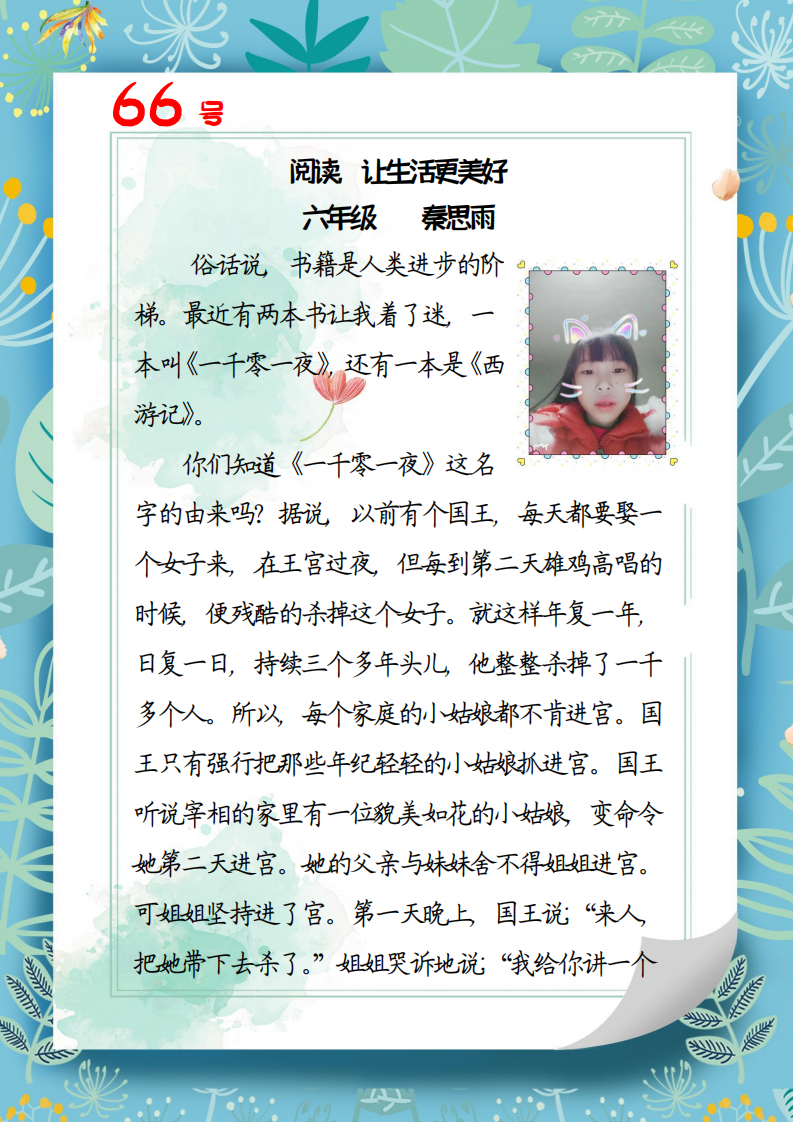 66 号
阅读 让生活更美好
六年级 秦思雨
俗话说，书籍是人类进步的阶
梯。最近有两本书让我着了迷，一
本叫《一千零一夜》，还有一本是《西
游记》。
你们知道《一千零一夜》这名
字的由来吗？据说，以前有个国王，每天都要娶一
个女子来，在王宫过夜，但每到第二天雄鸡高唱的
时候，便残酷的杀掉这个女子。就这样年复一年，
日复一日，持续三个多年头儿，他整整杀掉了一千
多个人。所以，每个家庭的小姑娘都不肯进宫。国
王只有强行把那些年纪轻轻的小姑娘抓进宫。国王
听说宰相的家里有一位貌美如花的小姑娘，变命令
她第二天进宫。她的父亲与妹妹舍不得姐姐进宫。
可姐姐坚持进了宫。第一天晚上，国王说：“来人，
把她带下去杀了。”姐姐哭诉地说：“我给你讲一个